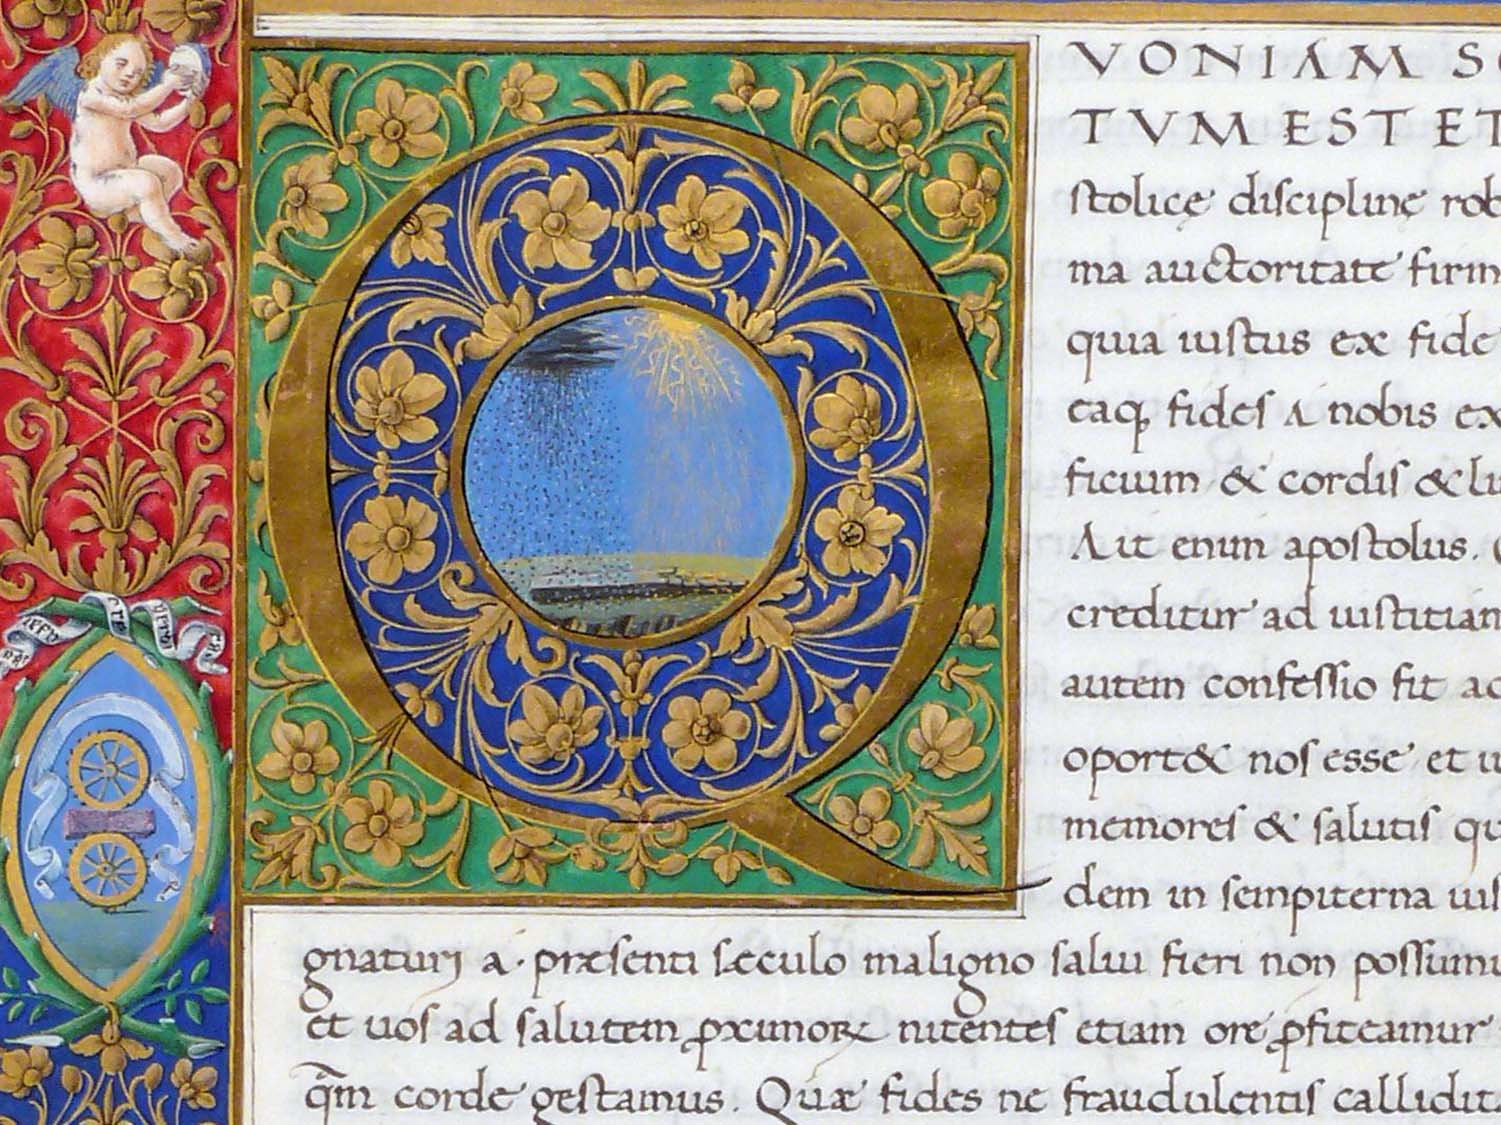 QVONIAM SC
TVM EST ET
stolicę disciplinę rob
ma auctoritate firm
quia iustus ex fide
eaq fides a nobis ex
ficium & cordis & lu
Ait enim apostolus.
creditur ad iustitiam
autem confessio fit ad
oport& nos esse et u
memores & salutis qu
dem in sempiterna ius
gnaturi a presenti sæculo maligno salui fieri non possumu
et uos ad salutem pximoꝝ nitentes etiam ore pfiteamur
qm corde gestamus. Quæ fides ne fraudulentis callidita